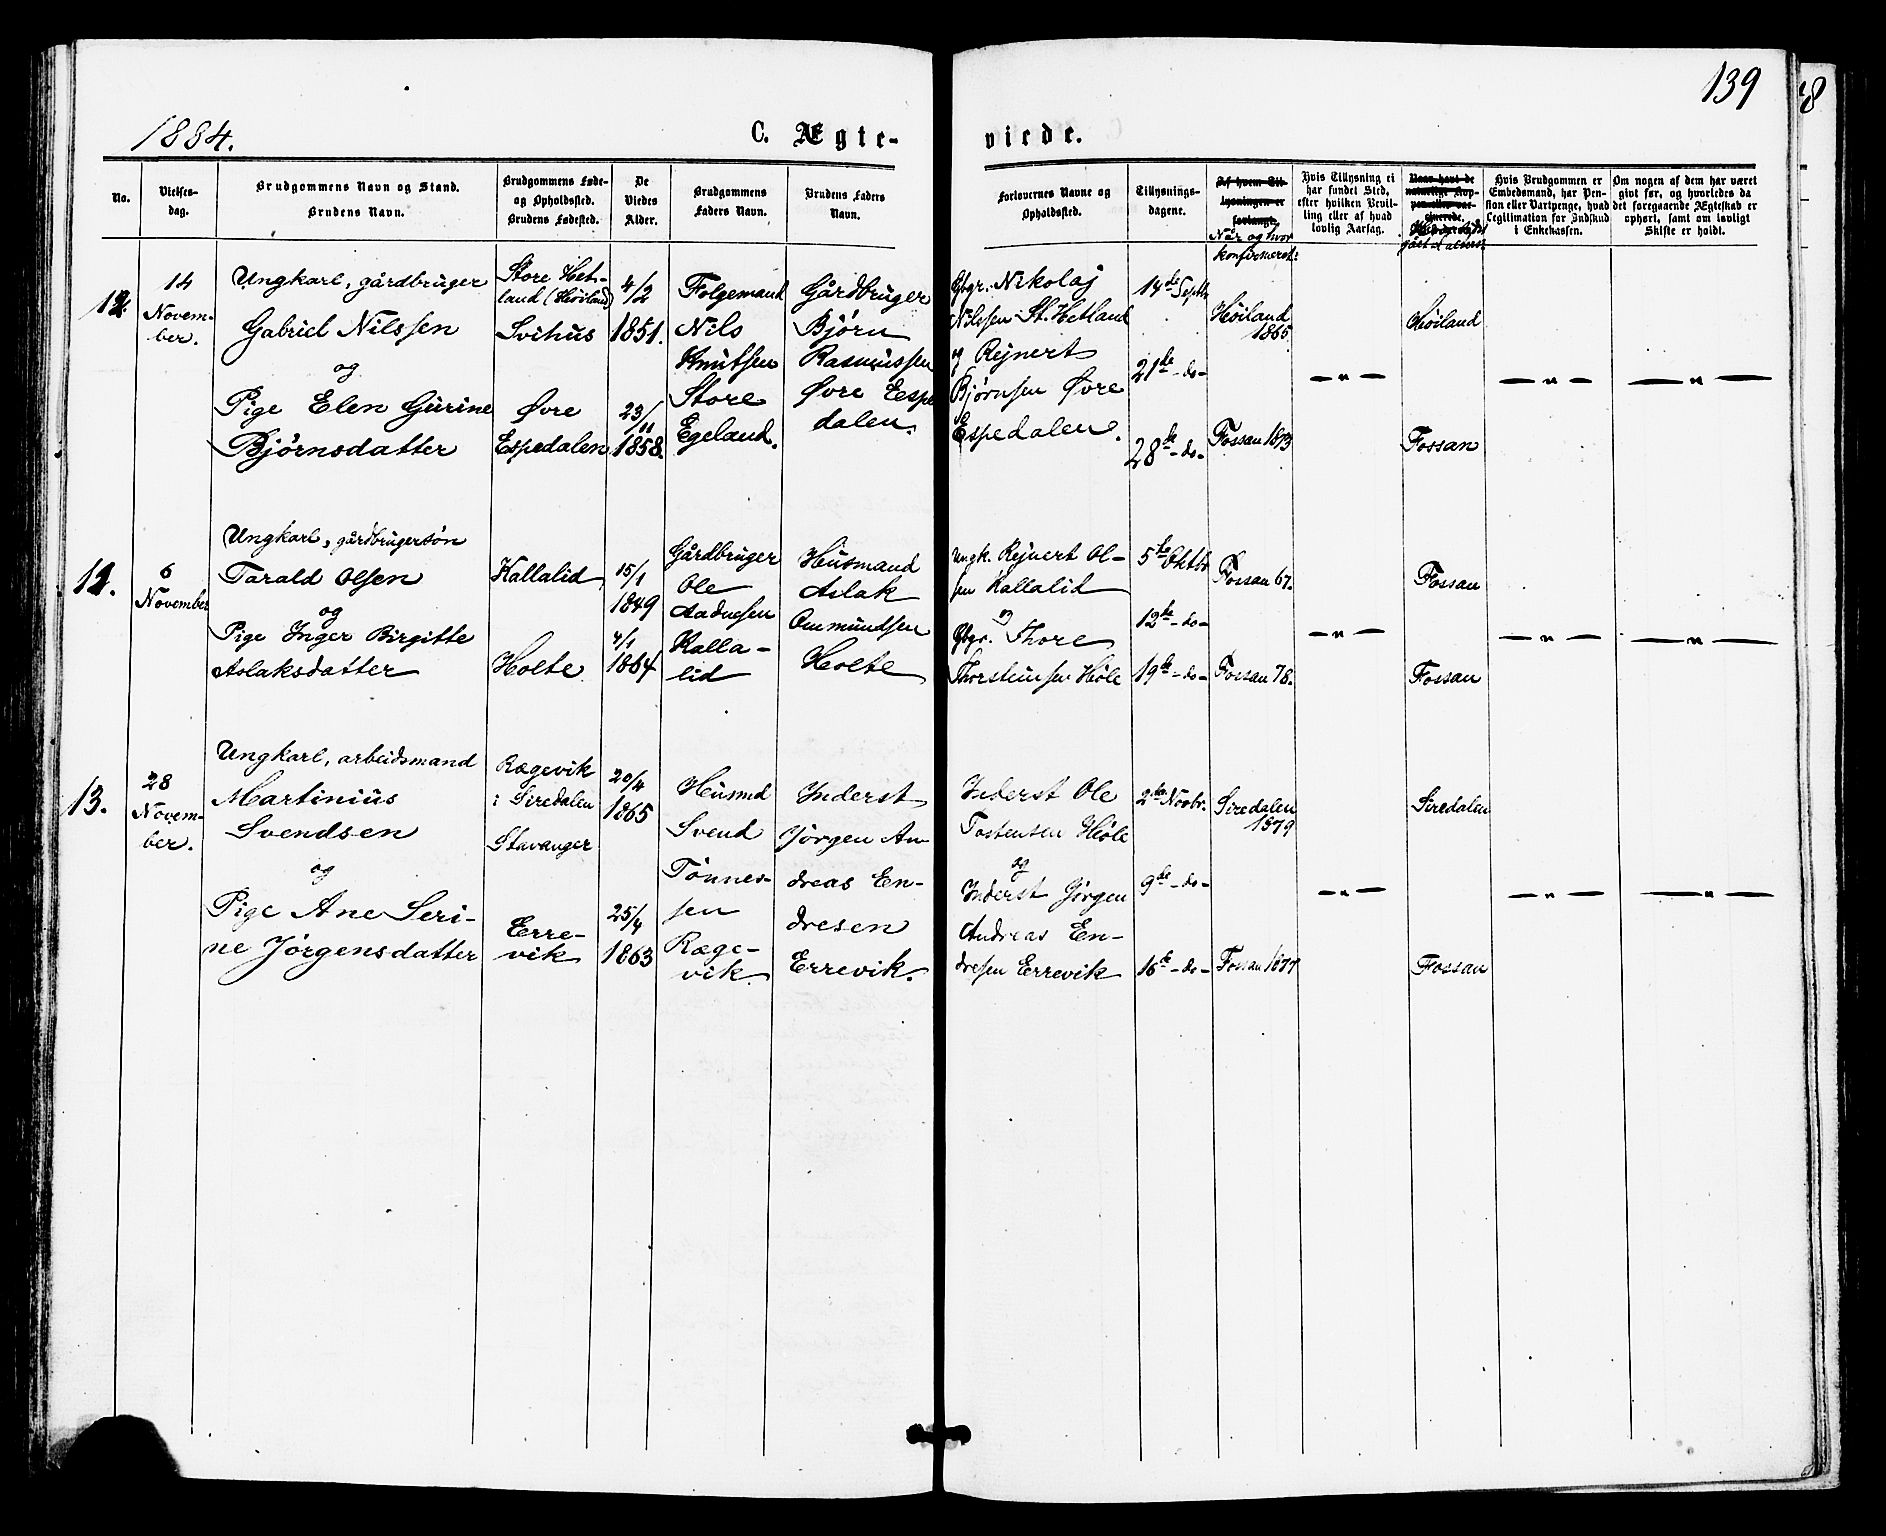 139
1884.
C. Ægte-
viede.
No.
Vielses-
dag.
Brudgommens Navn og Stand.
Brudens Navn.
Brudgommens Føde-
og Opholdssted.
Brudens Fødested.
De
Viedes
Alder.
Brudgommens
Faders Navn.
Brudens Faders
Navn.
Forlovernes Navne og
Opholdssted.
Tillysnings-
dagene.
Af hvem Til-
lysningen er
forlangt.
Når og hvor
konfirmeret:
Hvis Tillysning ei
har fundet Sted,
efter hvilken Bevil-
ling eller af hvad
lovlig Aarsag.
Naar havt de
naturlige Kop-
per eller vac-
cinerede.
gået til alters:
Hvis Brudgommen er
Embedsmand, har Pen-
sion eller Vartpenge, hvad
Legitimation for Indskud
i Enkekassen.
Om nogen af dem har været
givt før, og hvorledes da
det foregaaende Ægteskab er
ophørt, samt om lovligt
Skifte er holdt.
12.
14
Novem-
ber.
Ungkarl, gårdbruger
Gabriel Nilssen
og
Pige Elen Gurine
Bjørnsdatter
Store Het-
land (Høiland)
Svihus
Øvre
Espedalen
4/2
1851.
23/11
1858.
Folgemand
Nils
Knutsen
Store
Egeland.
Gårdbruger
Bjørn
Rasmussen
Øvre Espe
dalen.
Gbgr. Nikolaj
Nilssen St. Hetland
og Rejnert
Bjørnsen Øvre
Espedalen.
14de Septbr
21de - do -
28de - do -
Høiland
1865.
Fossan 1873
- " -
Høiland
Fossan
- " -
- " -
11.
6
November
Ungkarl, gårdbrugersøn
Tarald Olsen
og
Pige Inger Birgitte
Aslaksdatter
Kallalid
Holte
15/1
1849
4/1
1864
Gårdbruger
Ole
Aadnesen
Kalla-
lid
Husmand
Aslak
Ommundsen
Holte
Ungk. Rejnert Ol-
sen Kallalid
og
Gbgr. Thore
Thorsteinsen Høle
5te Oktbr
12te - do -
19de - do -
Fossan 67.
Fossan 78.
- " -
Fossan
Fossan
- " -
- " -
13.
28
Novem-
ber.
Ungkarl, arbeidsmand
Martinius
Svendsen
og
Pige Ane Seri-
ne Jørgensdatter
Rægevik
i Siredalen
Stavanger
Erre-
vik
20/4
1865
25/4
1863
Husmd
Svend
Tønnes-
sen
Ræge-
vik.
Inderst
Jørgen An
dreas En-
dresen
Errevik.
Inderst Ole
Tostensen Høle
og
Inderst Jørgen
Andreas En-
dresen Errevik
2den Novbr.
9de - do -
16de - do -
Siredalen
1879
Fossan 1877
- " -
Siredalen
Fossan
- " -
- " -